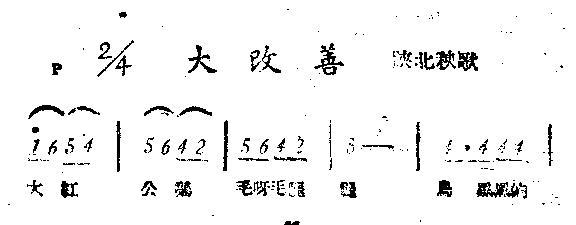 P 2/4 大改善 陕北秧歌
1 6 5 4 | 5 6 4 2 | 5 6 4 2 | 5 — | 1 · 4 4 4 |
大 紅 公 鷄 毛呀毛